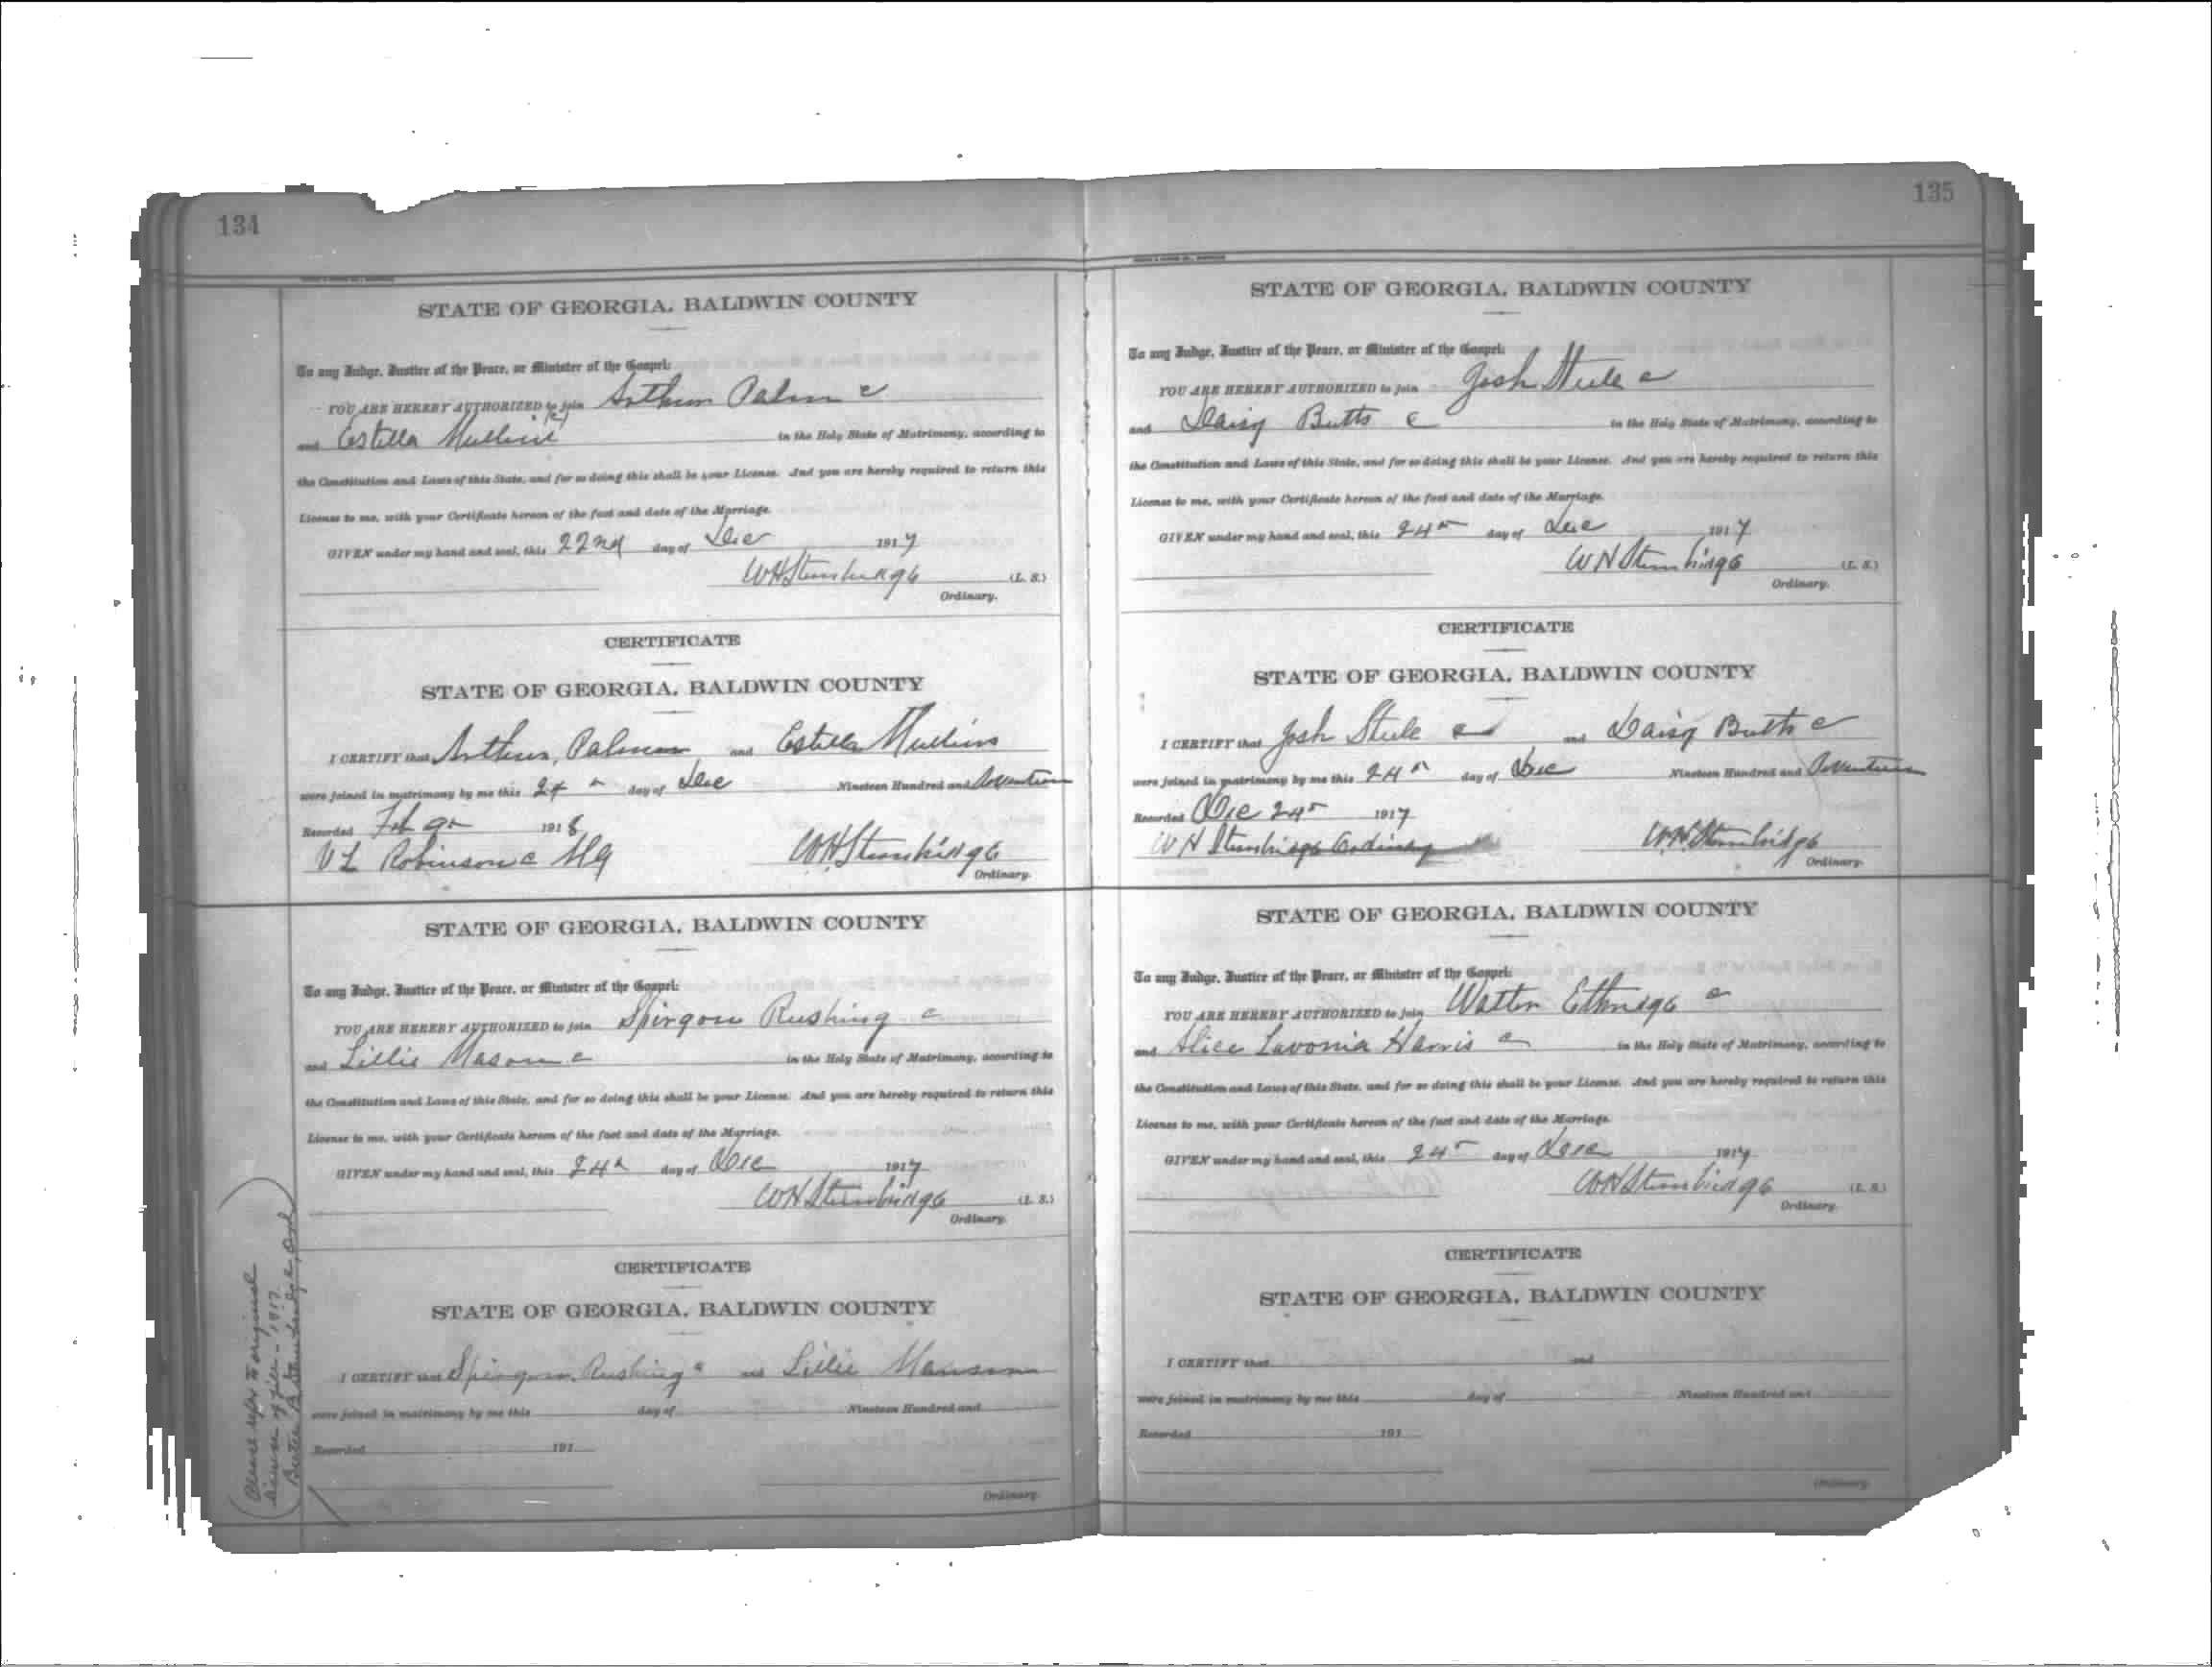 134
STATE OF GEORGIA, BALDWIN COUNTY
To any Judge, Justice of the Peace, or Minister of the Gospel:
YOU ARE HEREBY AUTHORIZED to join Arthur Palm c
and Estella Mullins (c) in the Holy State of Matrimony, according to
the Constitution and Laws of this State, and for so doing this shall be your License. And you are hereby required to return this
License to me, with your Certificate hereon of the fact and date of the Marriage.
GIVEN under my hand and seal, this 22nd day of Dec 1917
WHStembridge (L. S.)
Ordinary.
CERTIFICATE
STATE OF GEORGIA, BALDWIN COUNTY
I CERTIFY that Arthur Palmer and Estella Mullins
were joined in matrimony by me this 24 day of Dec Nineteen Hundred and Seventeen
Recorded Feb 9 1918
V L Robinson c MG WHStembridge
Ordinary.
STATE OF GEORGIA, BALDWIN COUNTY
To any Judge, Justice of the Peace, or Minister of the Gospel:
YOU ARE HEREBY AUTHORIZED to join Spirgon Rushing c
and Lillie Mason c in the Holy State of Matrimony, according to
the Constitution and Laws of this State, and for so doing this shall be your License. And you are hereby required to return this
License to me, with your Certificate hereon of the fact and date of the Marriage.
GIVEN under my hand and seal, this 24 day of Dec 1917
WHStembridge (L. S.)
Ordinary.
CERTIFICATE
STATE OF GEORGIA, BALDWIN COUNTY
I CERTIFY that Spirgon Rushing c and Lillie Manson
were joined in matrimony by me this day of Nineteen Hundred and
Recorded 191
Ordinary.
(Please refer to original
license of files - 1917
Stembridge, Ord)
135
STATE OF GEORGIA, BALDWIN COUNTY
To any Judge, Justice of the Peace, or Minister of the Gospel:
YOU ARE HEREBY AUTHORIZED to join Josh Stule c
and Daisy Butts c in the Holy State of Matrimony, according to
the Constitution and Laws of this State, and for so doing this shall be your License. And you are hereby required to return this
License to me, with your Certificate hereon of the fact and date of the Marriage.
GIVEN under my hand and seal, this 24 day of Dec 1917
WHStembridge (L. S.)
Ordinary.
CERTIFICATE
STATE OF GEORGIA, BALDWIN COUNTY
I CERTIFY that Josh Stule c and Daisy Butts c
were joined in matrimony by me this 24 day of Dec Nineteen Hundred and Seventeen
Recorded Dec 24 1917
WH Stembridge Ordinary WHStembridge
Ordinary.
STATE OF GEORGIA, BALDWIN COUNTY
To any Judge, Justice of the Peace, or Minister of the Gospel:
YOU ARE HEREBY AUTHORIZED to join Walter Ethridge c
and Alice Lavonia Harris c in the Holy State of Matrimony, according to
the Constitution and Laws of this State, and for so doing this shall be your License. And you are hereby required to return this
License to me, with your Certificate hereon of the fact and date of the Marriage.
GIVEN under my hand and seal, this 24 day of Dec 1917
WHStembridge (L. S.)
Ordinary.
CERTIFICATE
STATE OF GEORGIA, BALDWIN COUNTY
I CERTIFY that and
were joined in matrimony by me this day of Nineteen Hundred and
Recorded 191
Ordinary.